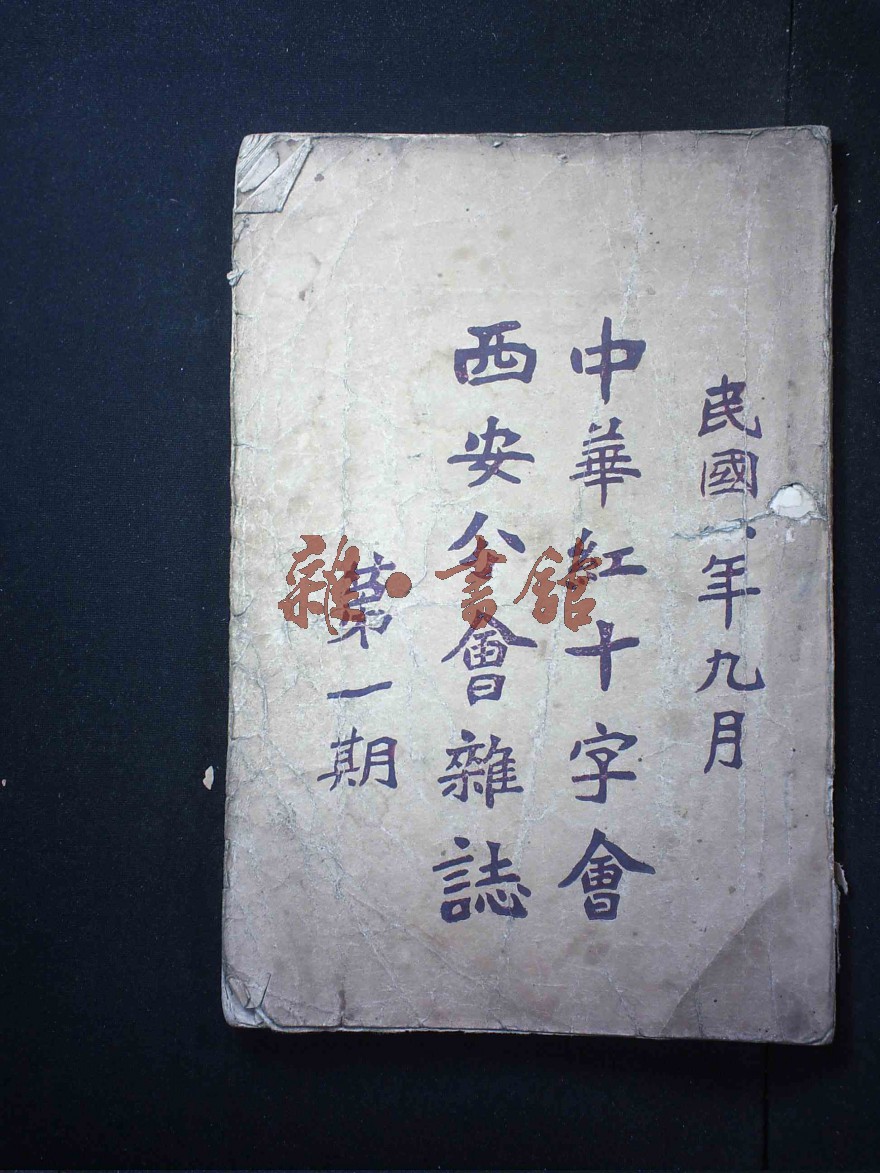 民國年九月
中華紅十字會
西安分會雜誌
第一期
雜·書館